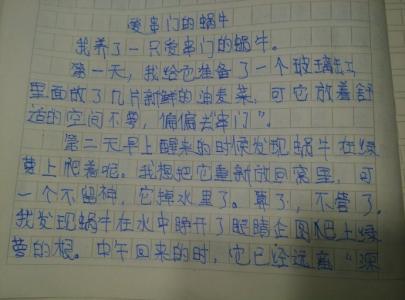 爱串门的蜗牛
我养了一只爱串门的蜗牛。
第一天，我给它准备了一个玻璃缸，
里面放了几片新鲜的油麦菜，可它放着舒
适的空间不要，偏偏去“串门”。
第二天早上醒来的时候发现蜗牛在绿
萝上爬着呢。我想把它重新放回窝里，可
一个不留神，它掉水里了。算了，不管了。
我发现蜗牛在水中睁开了眼睛企图爬上绿
萝的根。中午回来的时，它已经远离“深